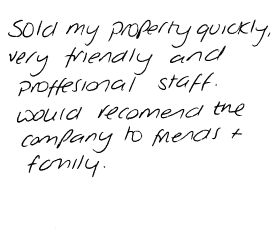 Sold my property quickly,
very friendly and
proffesional staff.
would recomend the
company to friends +
family.